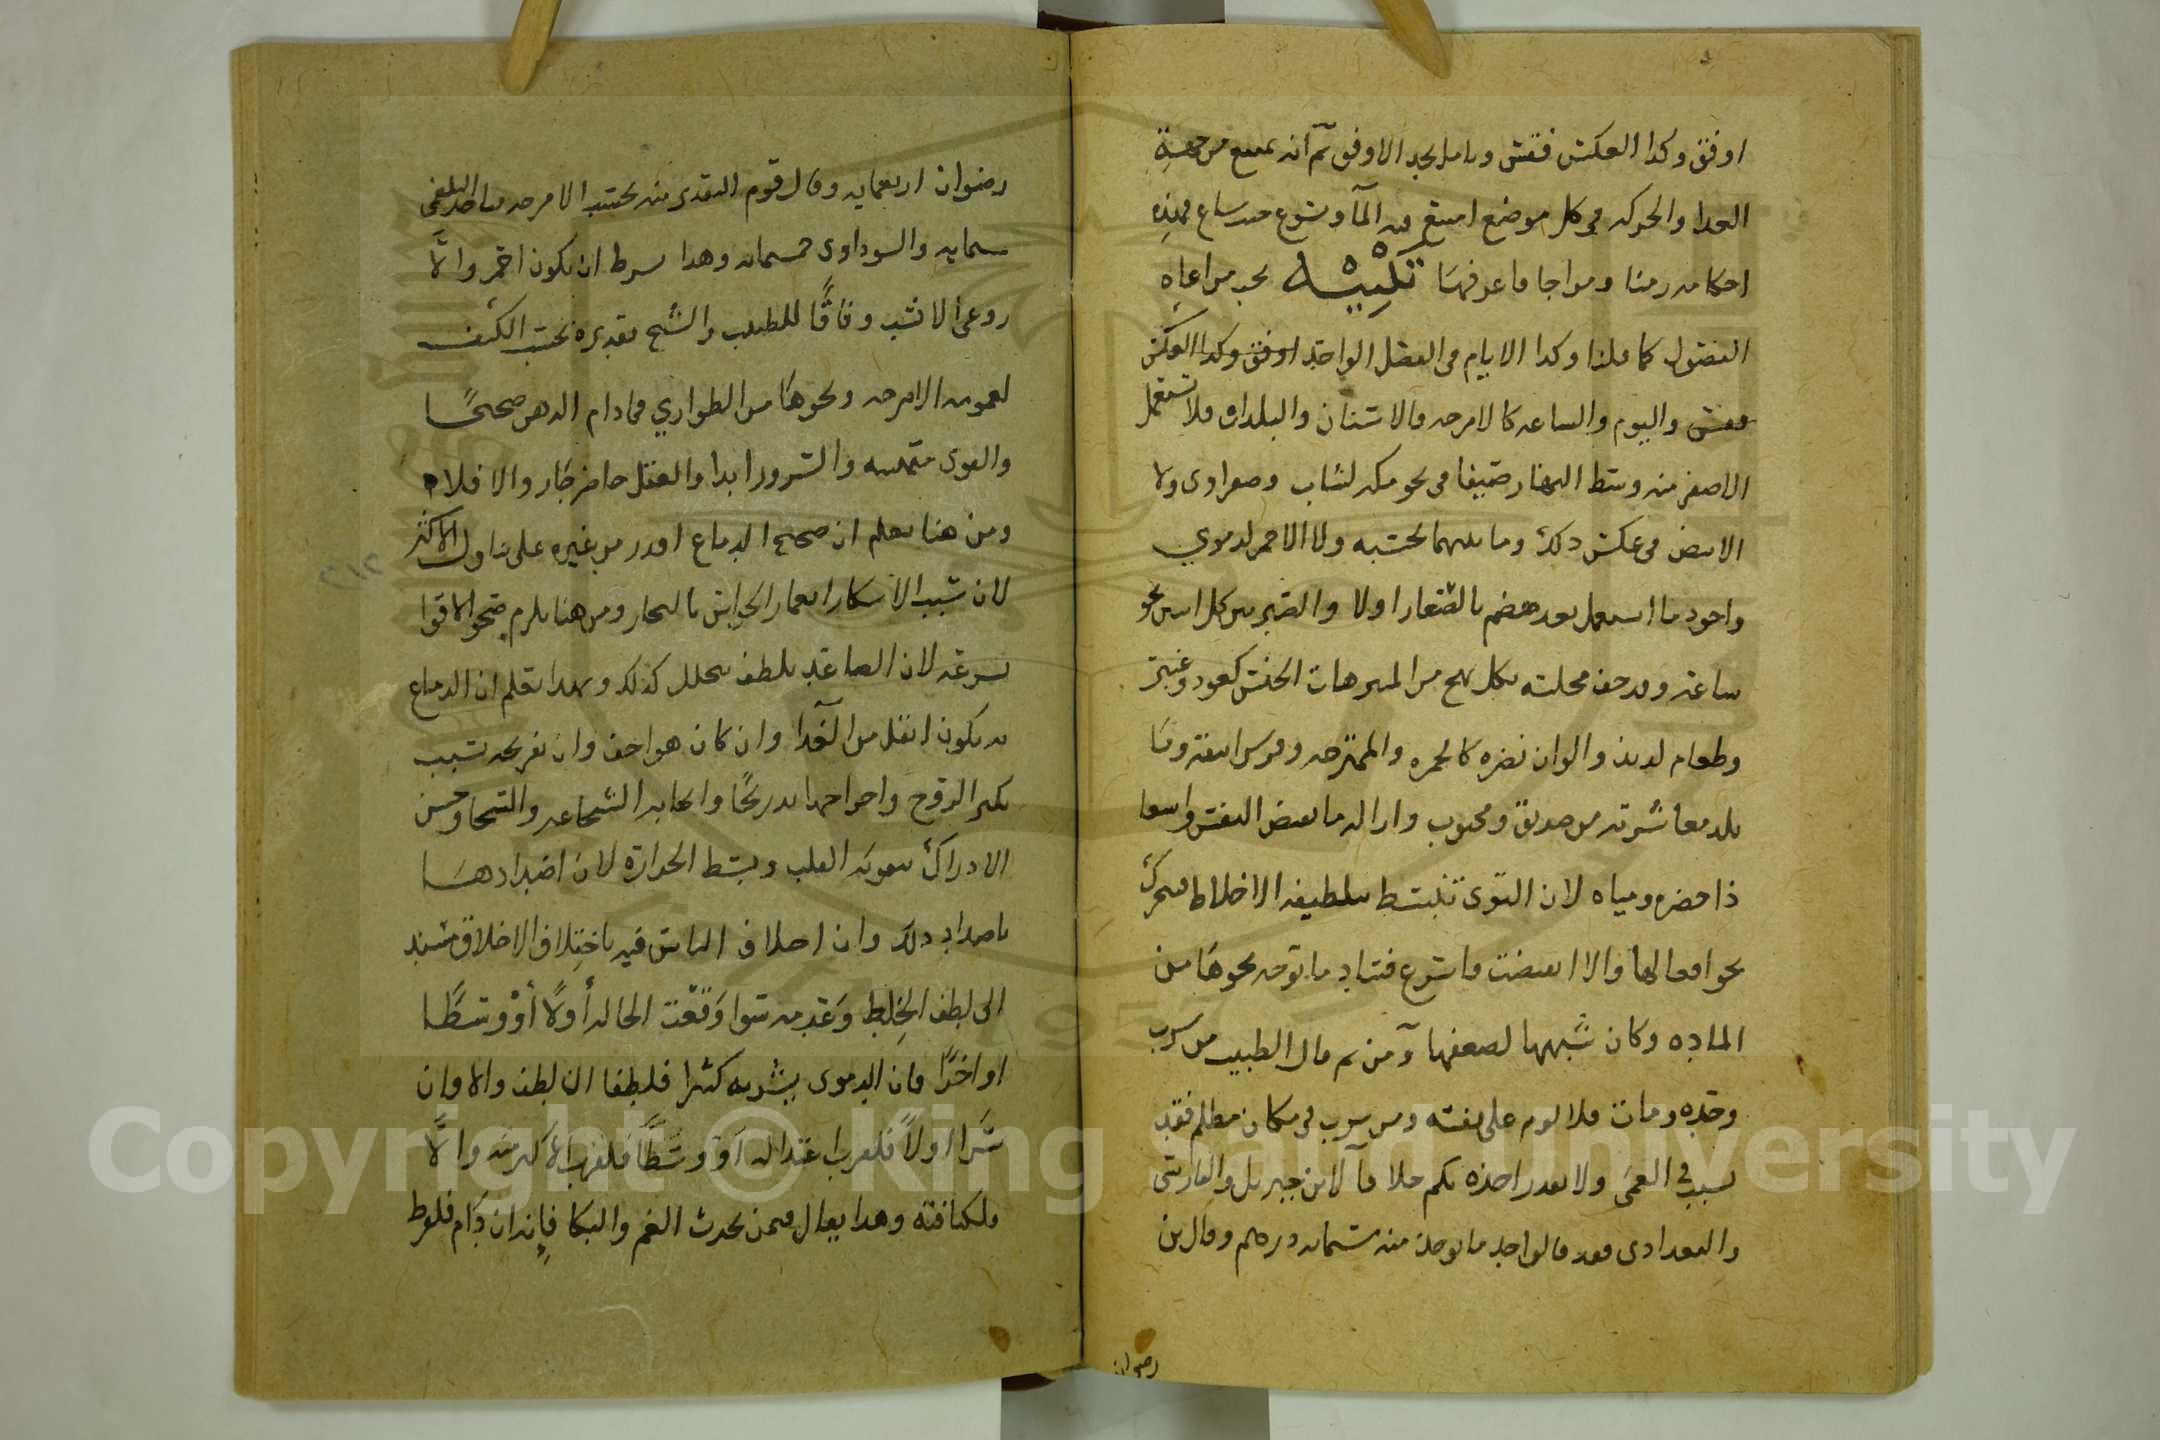 اوفق وكدا العكس فقس وتامل تجد الاوفق ثم انه يمنع من جهة
الغدا والحركه في كل موضع امتنع فيه المآ ويسوغ حيث ساغ فهذه
احكامه زمنا ومزاجا فاعرفها تنبيه يجب مراعاه
الفصول كما قلنا وكدا الايام في الفصل الواحد اوفق وكدا العكس
فقس واليوم والساعه كالامزجه والاسنان والبلدان فلا تستعمل
الاصفر منه وسط النهار صيفا في نحو مكه لشاب وصفراوى ولا
الابيض في عكس ذلك وما بينهما بحسبه ولا الاحمر لدموي
واجود ما استعمل بعد هضم بالصغار اولا والصبر بين كل اثنين نحو
ساعة وقد حف مجلسه بكل بهج من المفرحات الخمس كعود وعنبر
وطعام لذيذ والوان نضره كالحمره والممتزجه وفرس انيقة وما
يلذ معاشرته من صديق ومحبوب وازاله ما يقبض النفس واسعا
ذا خضره ومياه لان القوى تنبسط بتلطيفه الاخلاط فتتحرك
نحو افعالها والا انقبضت فاسرع فساد ما توجه نحوها من
الماده وكان شبهها لضعفها ومن ثم قال الطبيب من شرب
وحده ومات فلا لوم على نفسه ومن شرب في مكان مظلم فقد
تسبب في العمى ولا بقدر اخذه بكم خلافا لابن جبريل والفارسى
والبغدادى فقد قالوا جد ما يوخذ منه ستمايه درهم وقال بن
رضوان
رضوان اربعمايه وقال قوم التقدير منه بحسب الامزجه فياخذ البلغمي
ستمايه والسوداوى خمسمايه وهذا بشرط ان يكون احمر والا
روعى الانسب وفاقًا للطبيب والشيخ تقديره بحسب الكيف
لعموم الامزجه ونحوها من الطواري فمادام الذهن صحيحًا
والقوى متمسه والسرور ابدا والعقل حاضر جاز والا فلا
ومن هنا يعلم ان صحيح الدماغ اقدر من غيره على تناول الاكثر
لان سبب الاسكار انغمار الحواس بالبخار ومن هنا يلزم صحو الاقوا
بسرعة لان الصاعد بلطف يتحلل كذلك وبهذا تعلم ان الدماغ
به يكون اثقل من الغدا وان كان هو اخف وان تفريحه بسبب
تكثير الروح واخراجها تدريجًا وايجابه الشجاعه والسخا وحسن
الادراك بتقويه القلب وبسط الحرارة لان اضدادها
باضداد ذلك وان اختلاف الناس فيه باختلاف الاخلاق مستند
الى لطف الخلط وعدمه سوا وقعت الحاله أولًا أو وسطًا
او اخرًا فان الدموى يبشر به كثيرا فلطفا ان لطف والا وان
سَرا اولًا فلقرب اعتداله او وسطًا فلقهر الاكثر منه والا
فلكثافته وهذا يقال فيمن يحدث الغم والبكا فإنه ان دام فلفرط